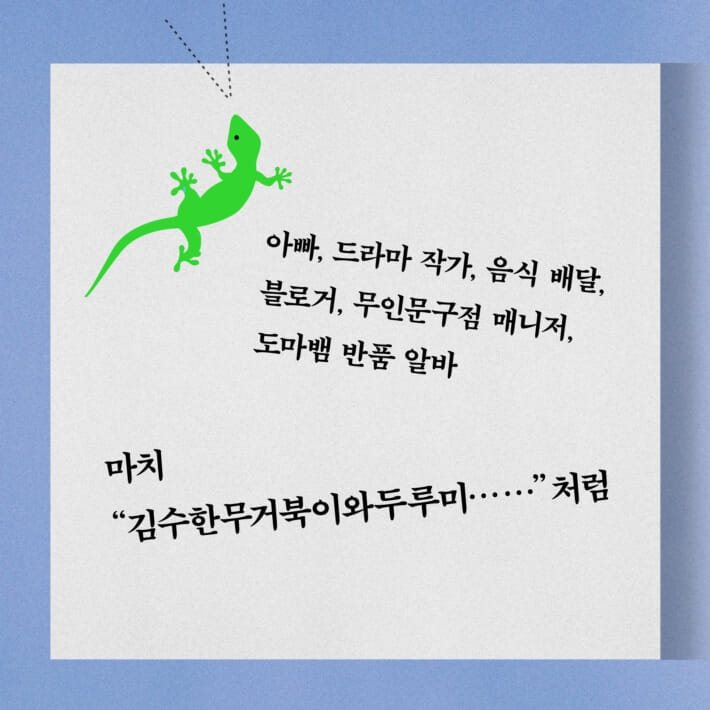 아빠, 드라마 작가, 음식 배달,
블로거, 무인문구점 매니저,
도마뱀 반품 알바
마치
“김수한무거북이와두루미⋯⋯”처럼